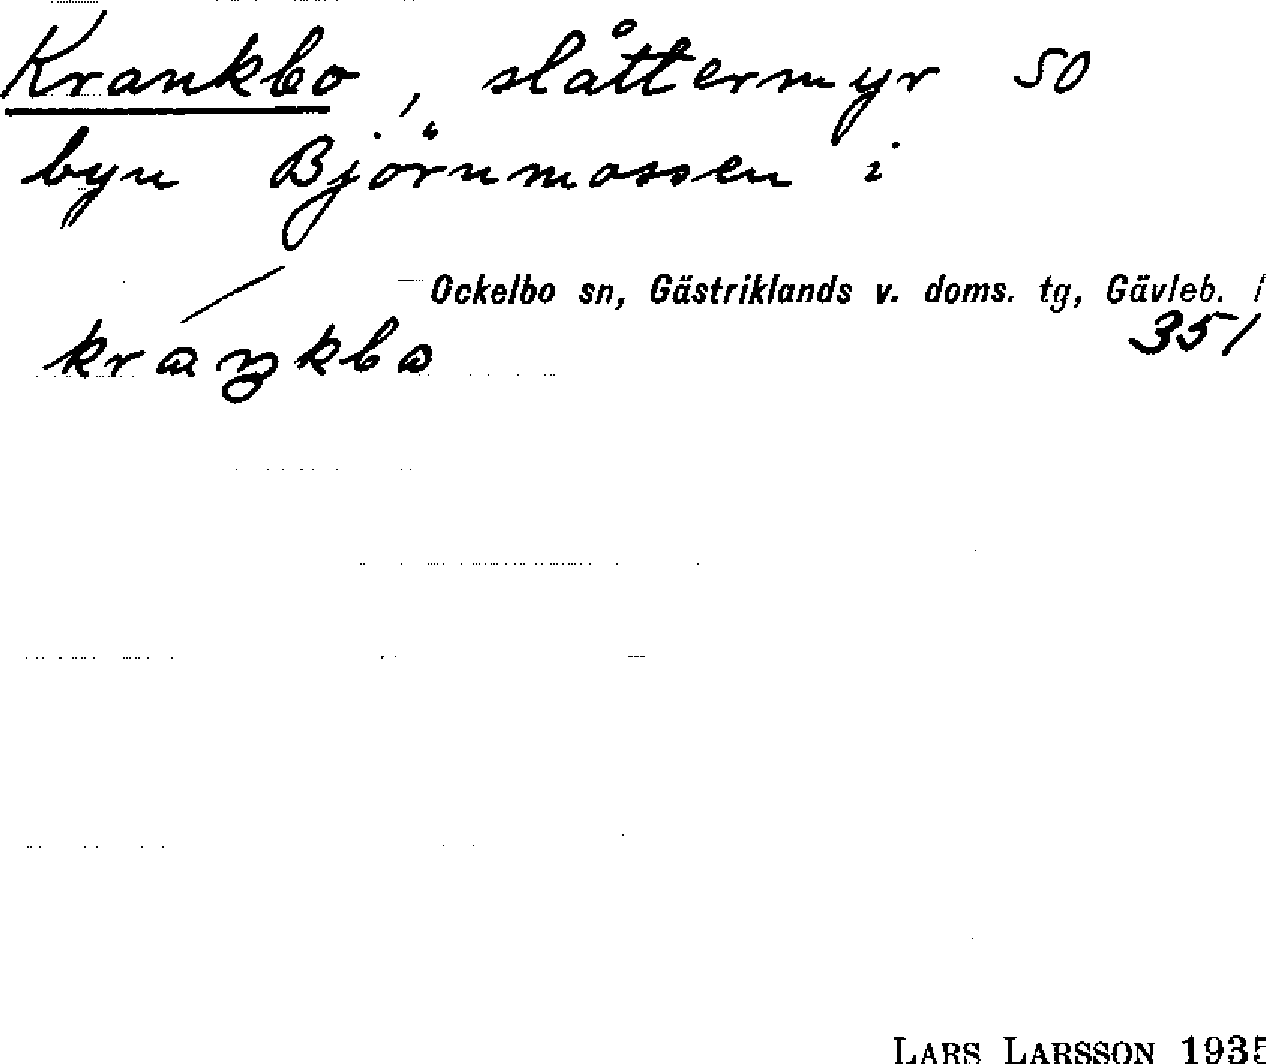 Krankbo, slåttermyr SO
byn Björnmossen i
Ockelbo sn, Gästriklands v. doms. tg, Gävleb. l
351
LARS LARSSON 1935